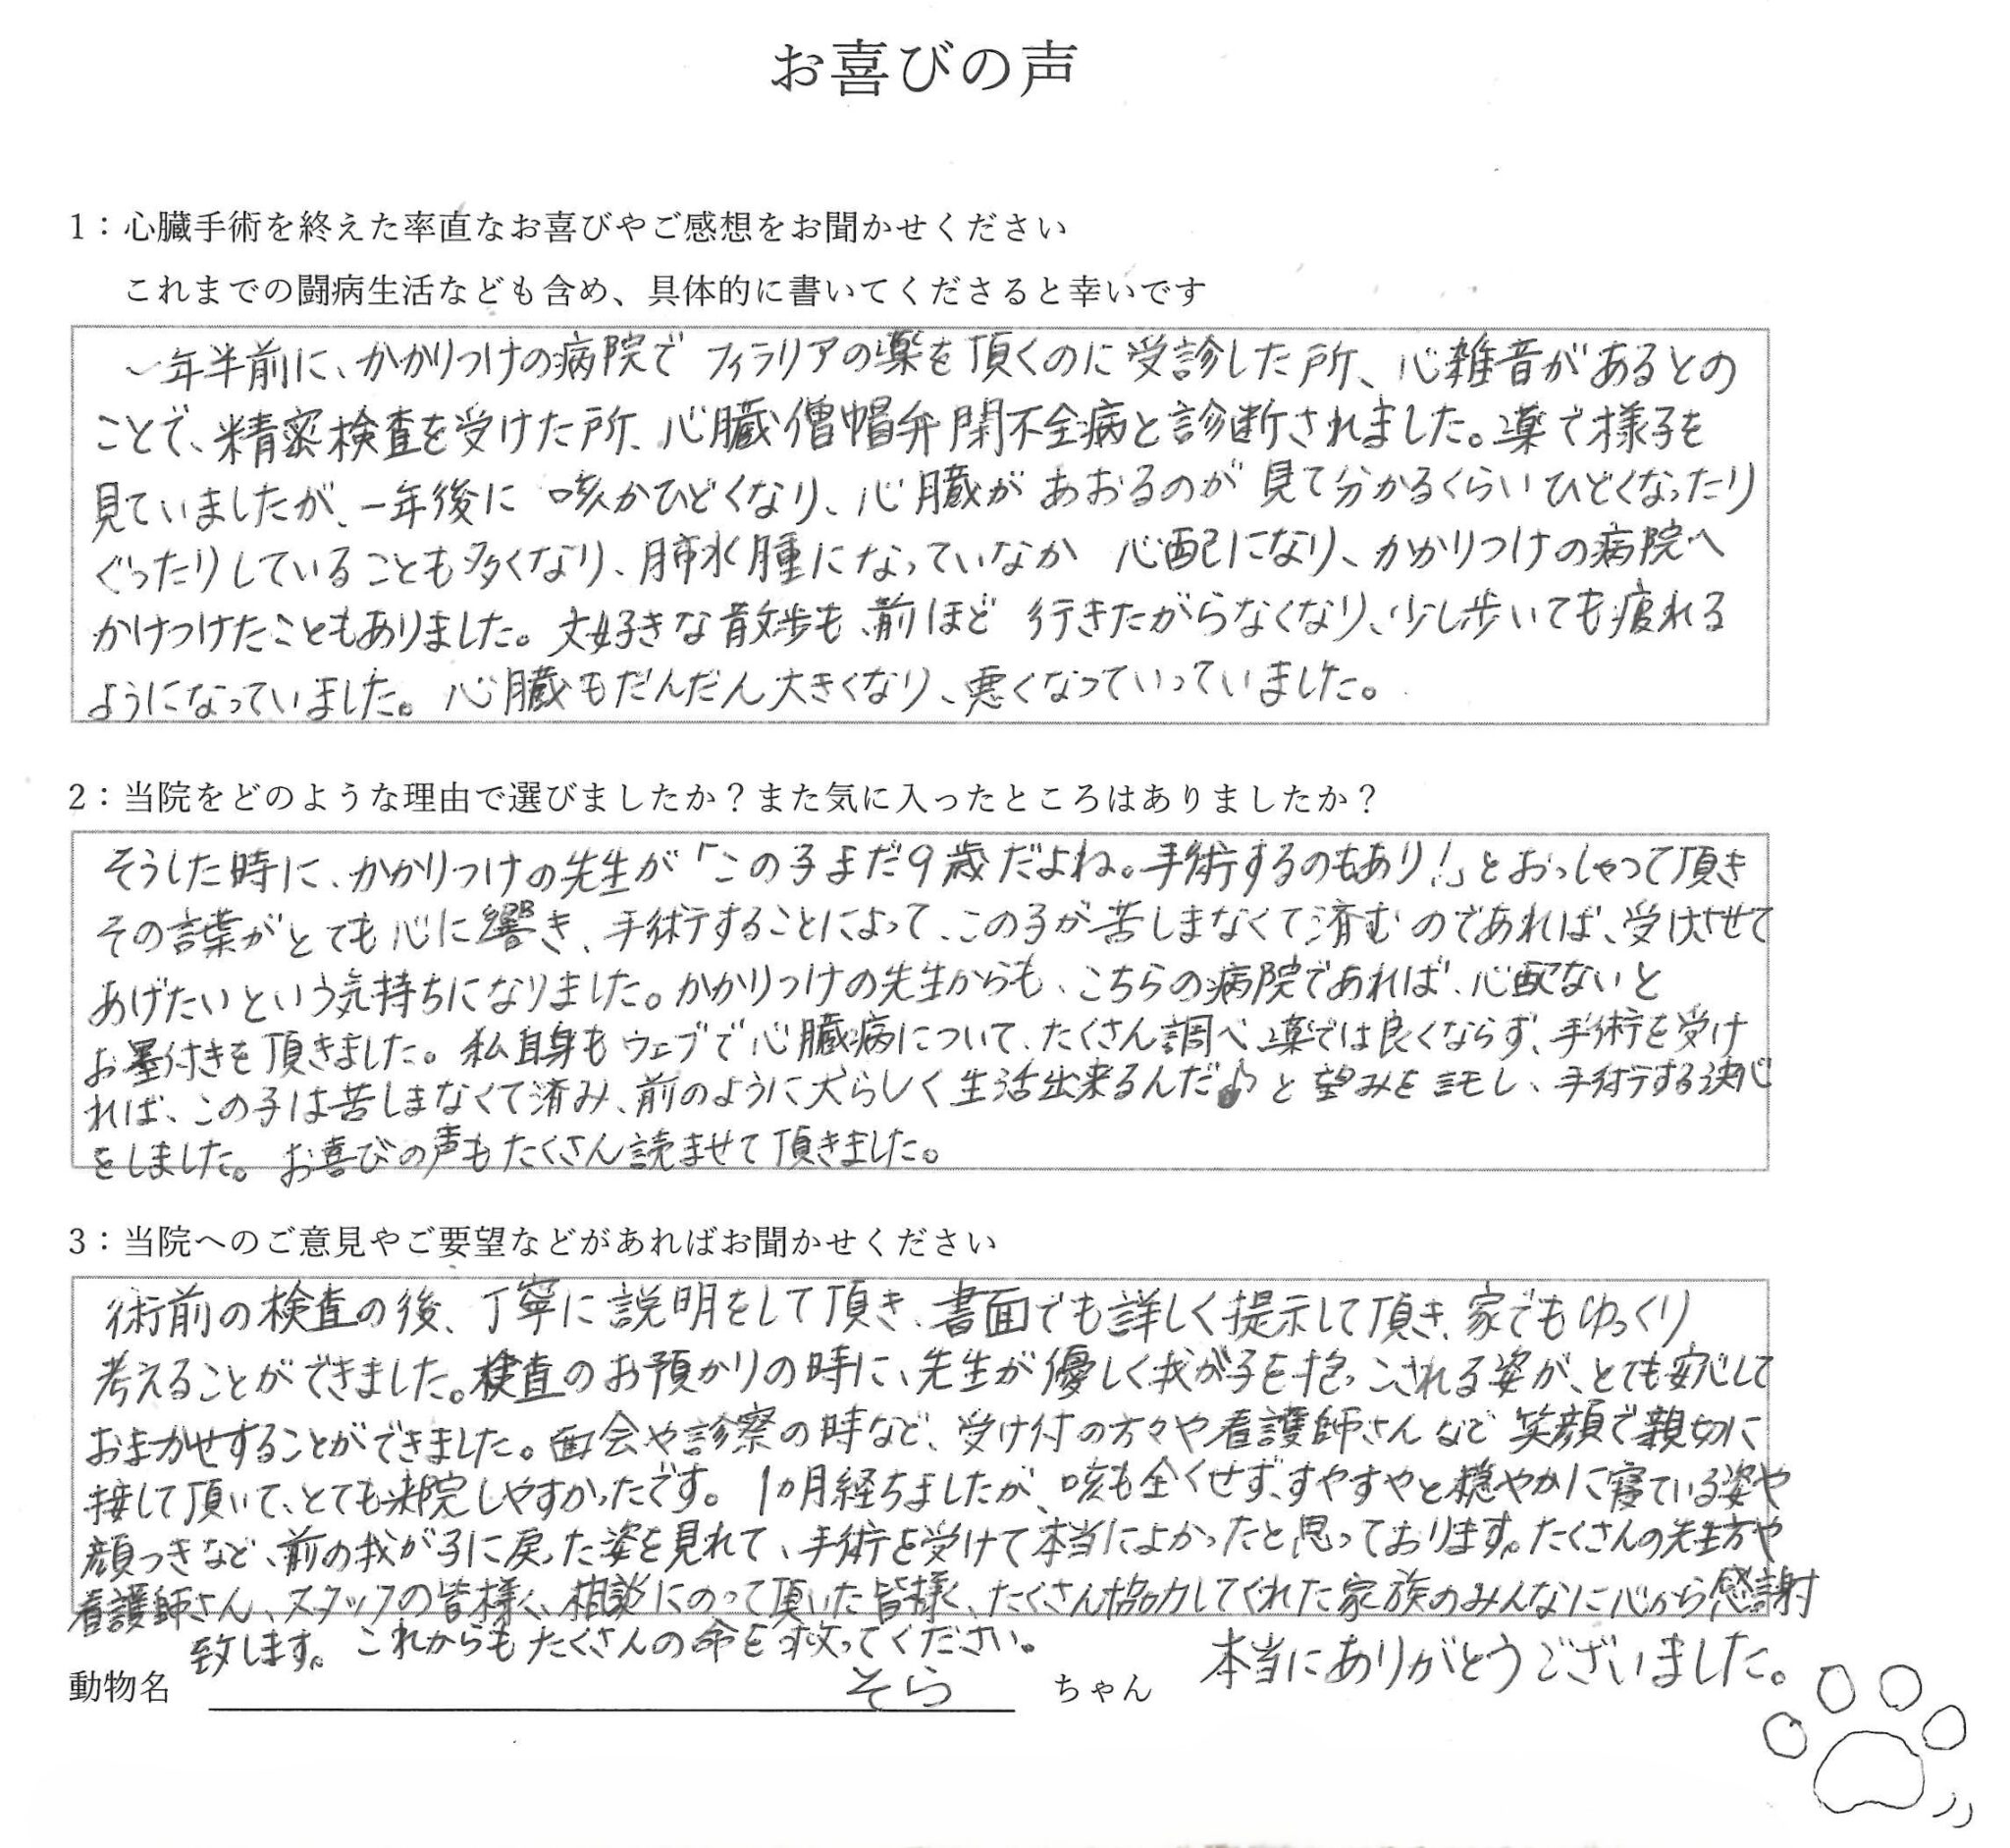 お喜びの声
1：心臓手術を終えた率直なお喜びやご感想をお聞かせください
これまでの闘病生活なども含め、具体的に書いてくださると幸いです
一年半前に、かかりつけの病院でフィラリアの薬を頂くのに受診した所、心雑音があるとの
ことで、精密検査を受けた所、心臓僧帽弁閉不全病と診断されました。薬で様子を
見ていましたが、一年後に 咳がひどくなり、心臓があおるのが見て分かるくらいひどくなったり
ぐったりしていることも多くなり、肺水腫になっていなか 心配になり、かかりつけの病院へ
かけつけたこともありました。大好きな散歩も、前ほど 行きたがらなくなり、少し歩いても疲れる
ようになっていました。心臓もだんだん大きくなり、悪くなっていっていました。
2：当院をどのような理由で選びましたか？また気に入ったところはありましたか？
そうした時に、かかりつけの先生が「この子まだ9歳だよね。手術するのもあり！」とおっしゃって頂き
その言葉がとても心に響き、手術することによって、この子が苦しまなくて済むのであれば、受けさせて
あげたいという気持ちになりました。かかりつけの先生からも、こちらの病院であれば、心配ないと
お墨付きを頂きました。私自身もウェブで心臓病について、たくさん調べ、薬では良くならず、手術を受け
れば、この子は苦しまなくて済み、前のように犬らしく生活出来るんだ♪と望みを託し、手術する決心
をしました。お喜びの声もたくさん読ませて頂きました。
3：当院へのご意見やご要望などがあればお聞かせください
術前の検査の後、丁寧に説明をして頂き、書面でも詳しく提示して頂き、家でもゆっくり
考えることができました。検査のお預かりの時に、先生が優しく我が子を抱っこされる姿が、とても安心して
おまかせすることができました。面会や診察の時など、受け付の方々や看護師さんなど笑顔で親切に
接して頂いて、とても来院しやすかったです。1カ月経ちましたが、咳も全くせず、すやすやと穏やかに寝ている姿や
顔つきなど、前の我が子に戻った姿を見れて、手術を受けて本当によかったと思っております。たくさんの先生方や
看護師さん、スタッフの皆様、相談にのって頂いた皆様、たくさん協力してくれた家族のみんなに心から感謝
致します。これからもたくさんの命を救ってください。
本当にありがとうございました。
動物名 そら ちゃん